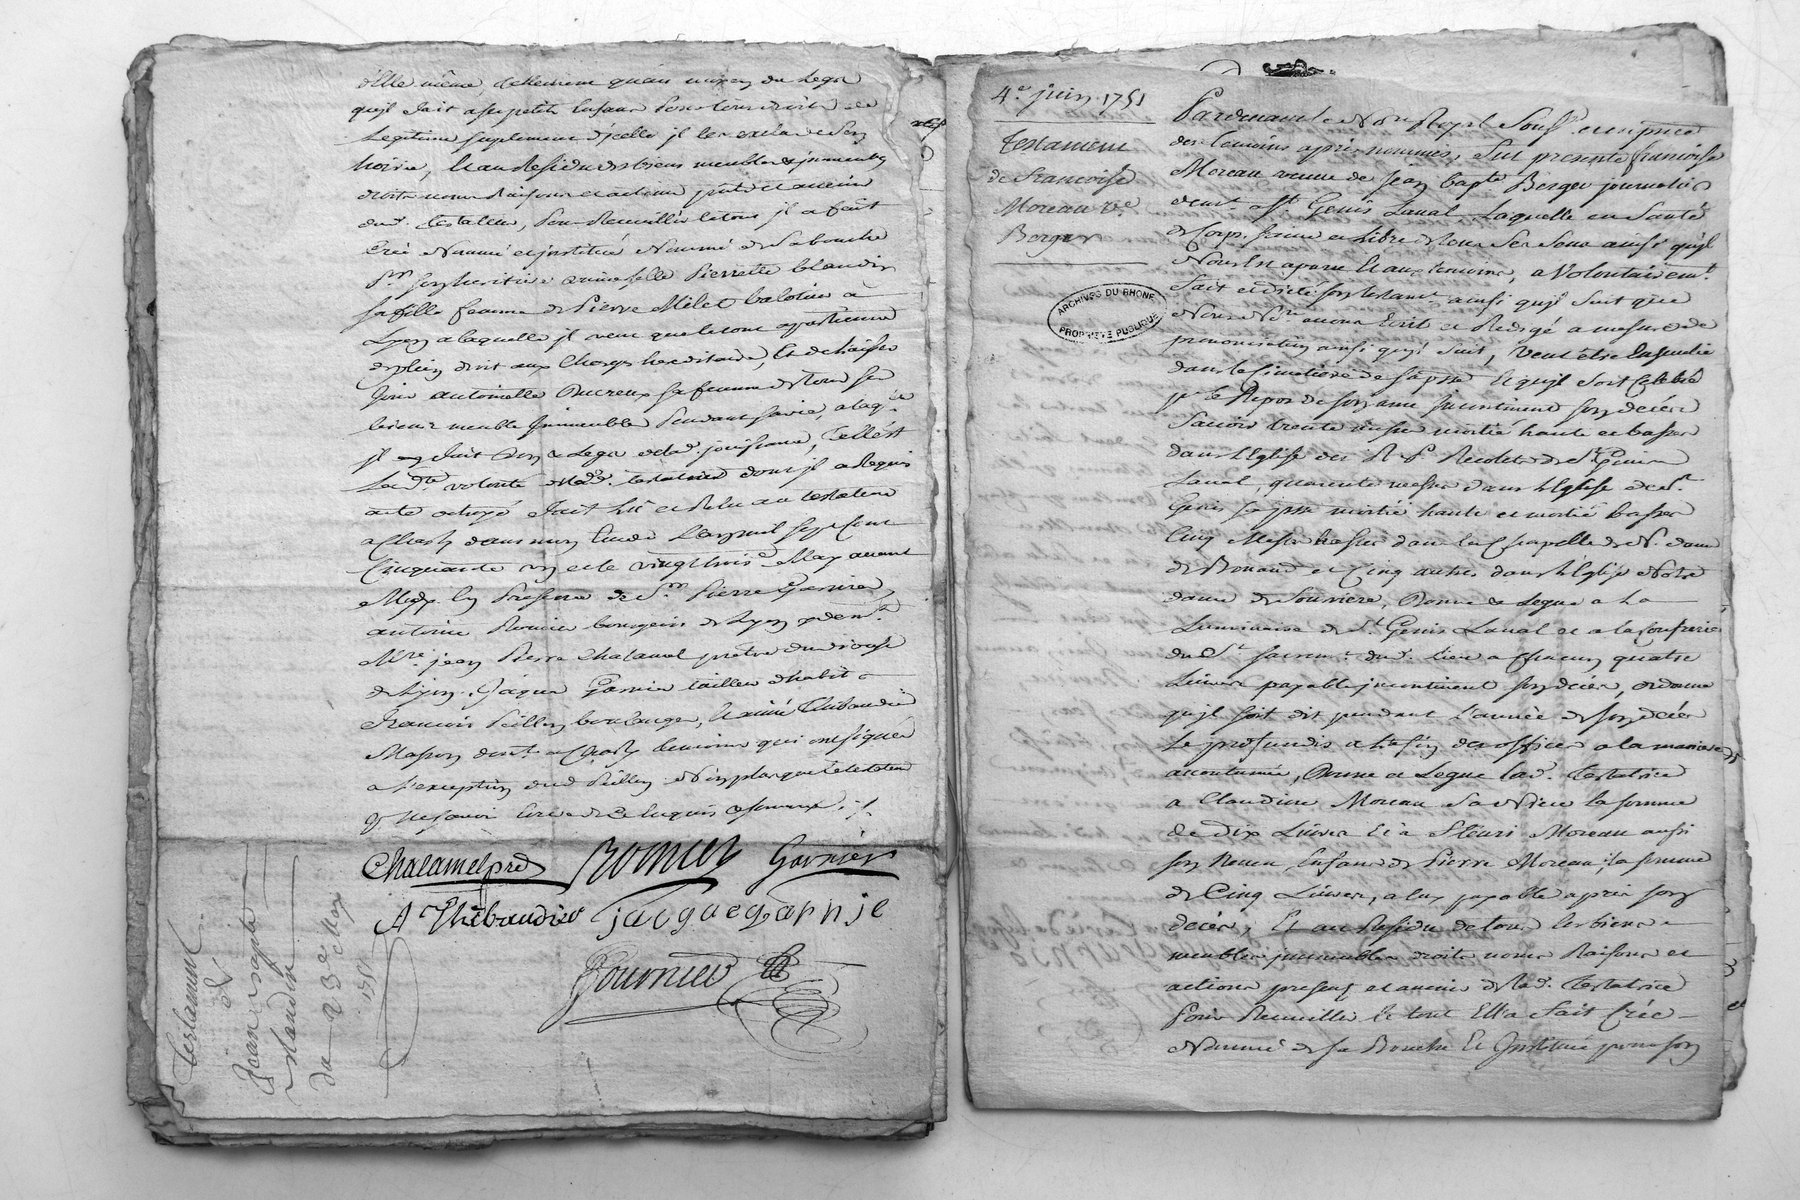 d'Elle même, tellement qu'au moyen du Legat
qu'il fait a ses petits Enfans pour tous droits de
Legitime suplement d'icelle jl les exclud de son
hoirie, Et au Residu des biens meubles & jmmeubles
droits noms Raisons et actions pnts et avenir
dud. testateur, pour Recueillir le tout jl a fait
Créé Nommé et jnstitué Nommé de sa bouche
pr. son heritiere universelle Pierrette blandin
sa fille femme de Pierre Milet balotier à
Lyon a laquelle jl veut que le tout apartienne
de plein droit aux Charges hereditaires, Et de laisser
jouir antoinette Ducreux sa femme de tous ses
biens meubles jmmeubles pendant sa vie, a laqle.
jl en fait Don & Legs de lad. jouissance, telle est
La dte. volonté dud. testateur dont jl a Requis
acte octroyé fait Lû et Relu au testateur
a Charly dans mon Etude L'an mil sept cent
Cinquante un et le vingt trois May avant
Midy En presence de Sr. Pierre Garnier,
antoine Romier bourgeois de Lyon y demt.
Mre. jean Pierre Chalamel pretre du diocese
de Lyon. Jâque Garnier tailleur d'habits
francois Peillon boulanger, Et aimé Thibaudier
Masson demt. a Charly temoins qui ont signés
a l'exception dud. Peillon Non plus que le testateur
p. Ne savoir Ecrire de Ce Enquis & sommés ./.
Chalamel pre Romier Garnier
A Thibaudier jacque garnie
Fournier
Testament
de
Jean baptte
Blandin
du 23e May
1751
4e. juin 1751
Testament
de Francoise
Moreau ve.
Berger
ARCHIVES DU RHONE
PROPRIETE PUBLIQUE
Pardevant le Nore. Royal Sousé. et en pnce
des temoins apres nommés, fut presente francoise
Moreau veuve de jean bapte. Berger journalier
demt. a St. Genis Laval Laquelle en Santé
de Corps, saine et Libre de tous ses sens ainsi qu'jl
Nous Est aparu Et aux temoins, a Volontairemt.
fait et dicté son testamt. ainsi qu'jl suit que
Nous Nre. avons Ecrit et Redigé a mesure de
prononciation ainsi qu'jl suit, veut être Ensevelie
dans le Cimetiere de sa psse Et qu'jl soit Celebré
pr. le Repos de son ame jncontinent son decés
Savoir trente messes moitié hautes et basses
dans l'Eglise des R. P. Recolets de St. Genis
Laval, quarante messes dans l'Eglise de St.
Genis sa psse moitié hautes et moitié basses
Cinq Messes basses dans la Chapelle de N. dame
de Bonand et Cinq autres dans l'Eglise Notre
dame de fourviere, Donne & Legue a La
Luminaire de St. Genis Laval et a la Confrerie
du St. sacremt. dud. lieu a Chacun quatre
Livres payables jncontinent son decés, ordonne
qu'jl soit dit pendant l'année de son decés
Le profundis a la fin des offices a la maniere
accoutumée, Donne et Legue lad. testatrice
a Claudine Moreau Sa Niece la somme
de dix Livres Et a fleuri Moreau aussi
son Neveu, Enfans de Pierre Moreau, la somme
de Cinq Livres, a eux payables après son
decés, Et au Residu de tous les biens
meubles jmmeubles droits noms Raisons et
actions presens et avenir de lad. testatrice
Pour Recueillir le tout Elle a fait Créé
Nommé de sa Bouche Et Jnstitué pour son